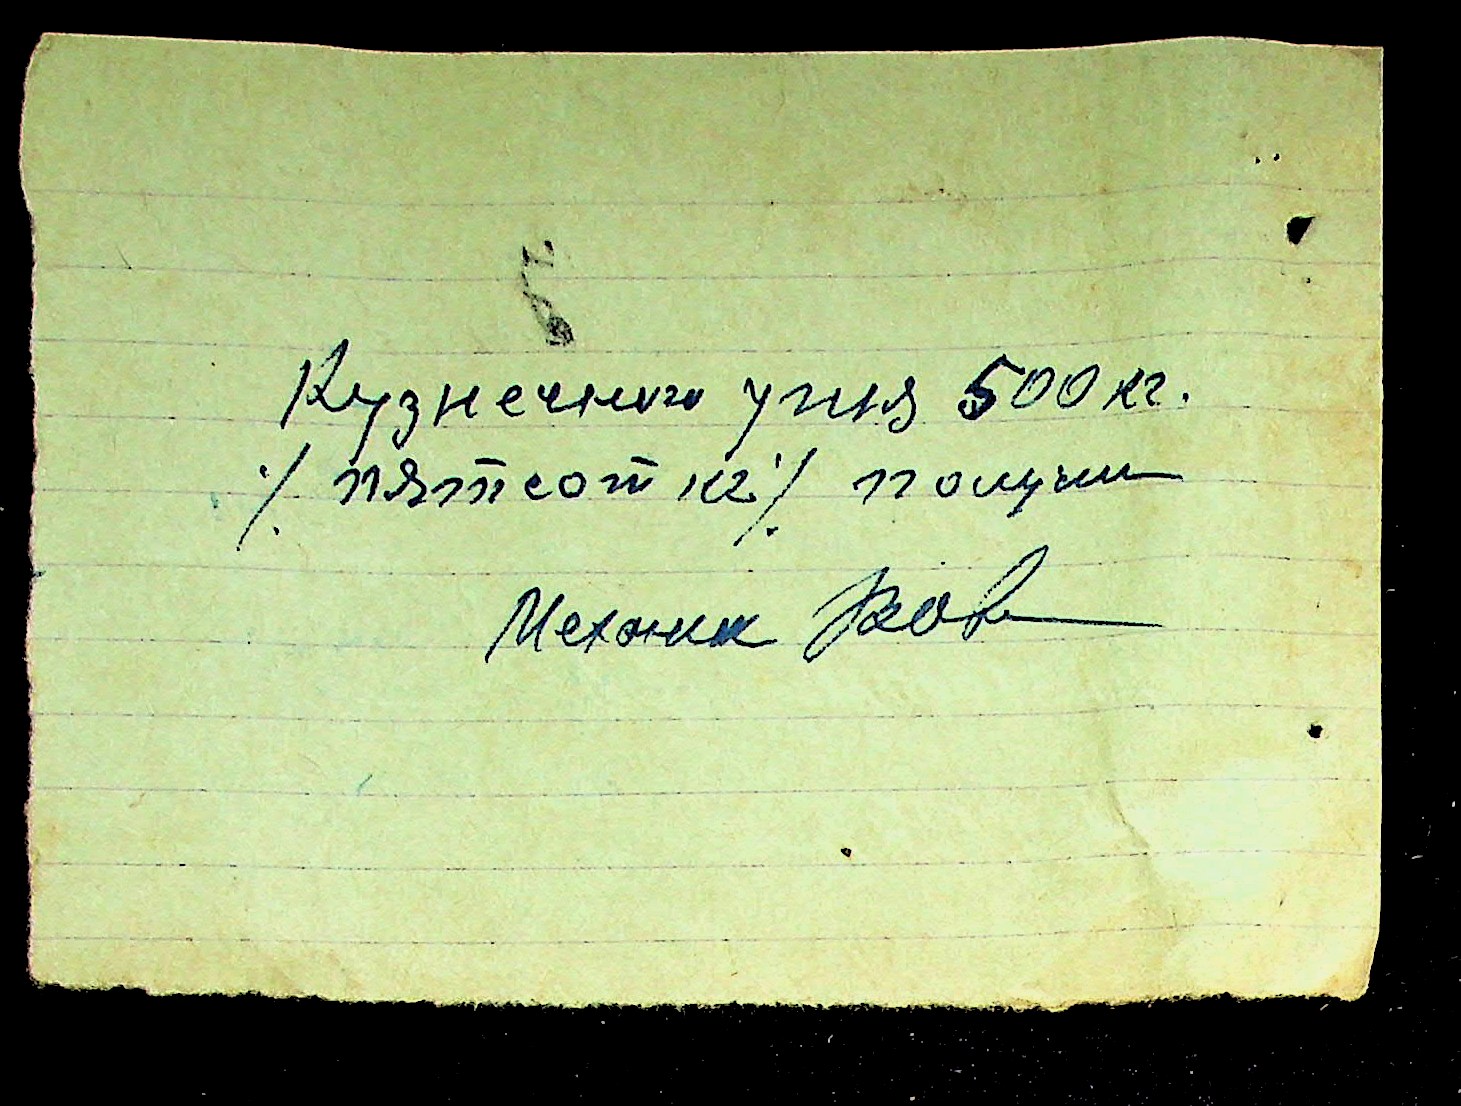 Кузнечного угля 500 кг.
./. пятсот кг ./. получил
Механик